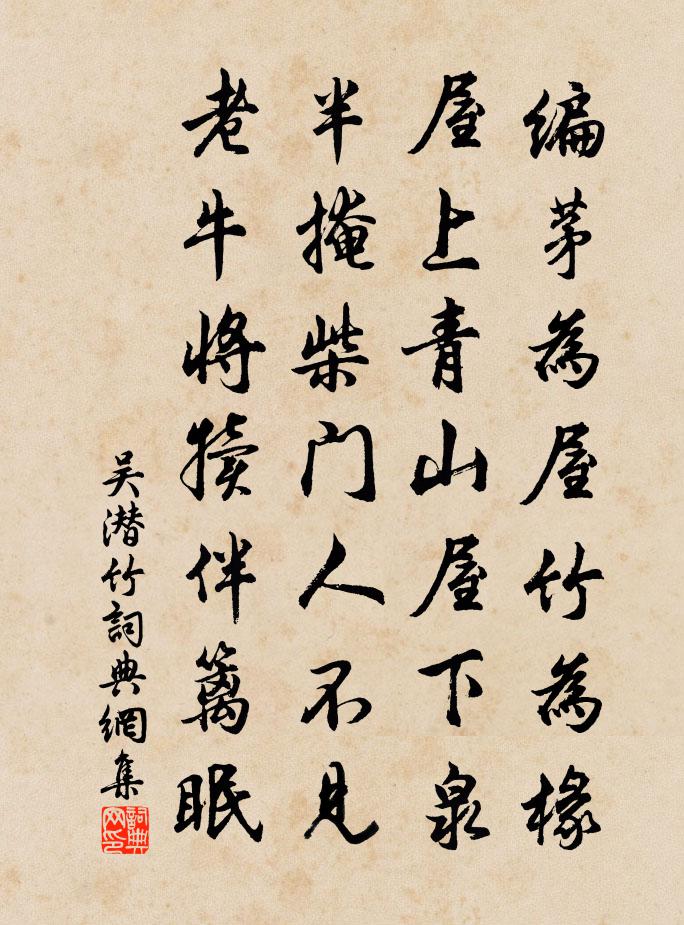 编茅為屋竹為椽
屋上青山屋下泉
半掩柴门人不見
老牛将犊伴篱眠
吴潜竹詞典網集
詞典网印